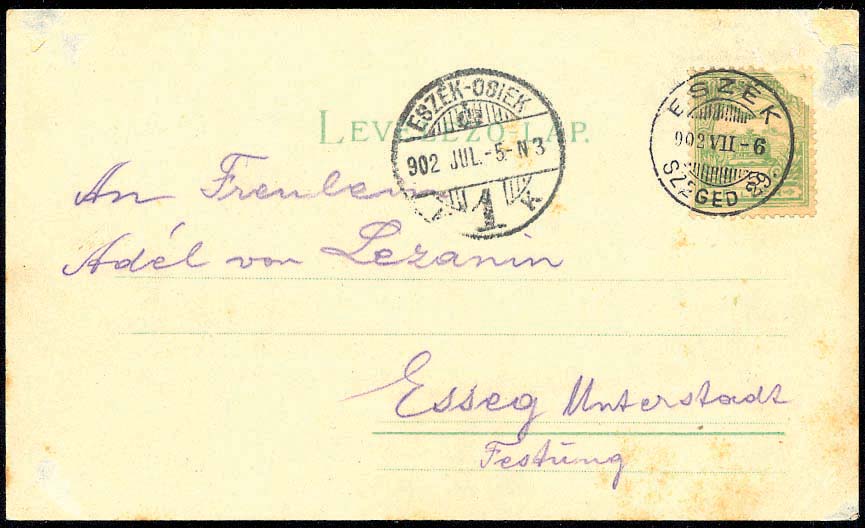 LEVELEZŐ-LAP.
ESZÉK-OSIEK
902 JUL.-5-N3
1 K
ESZÉK
902 VII-6
SZEGED 29
An Freulein
Adél von Lezanin
Esseg Unterstadt
Festung